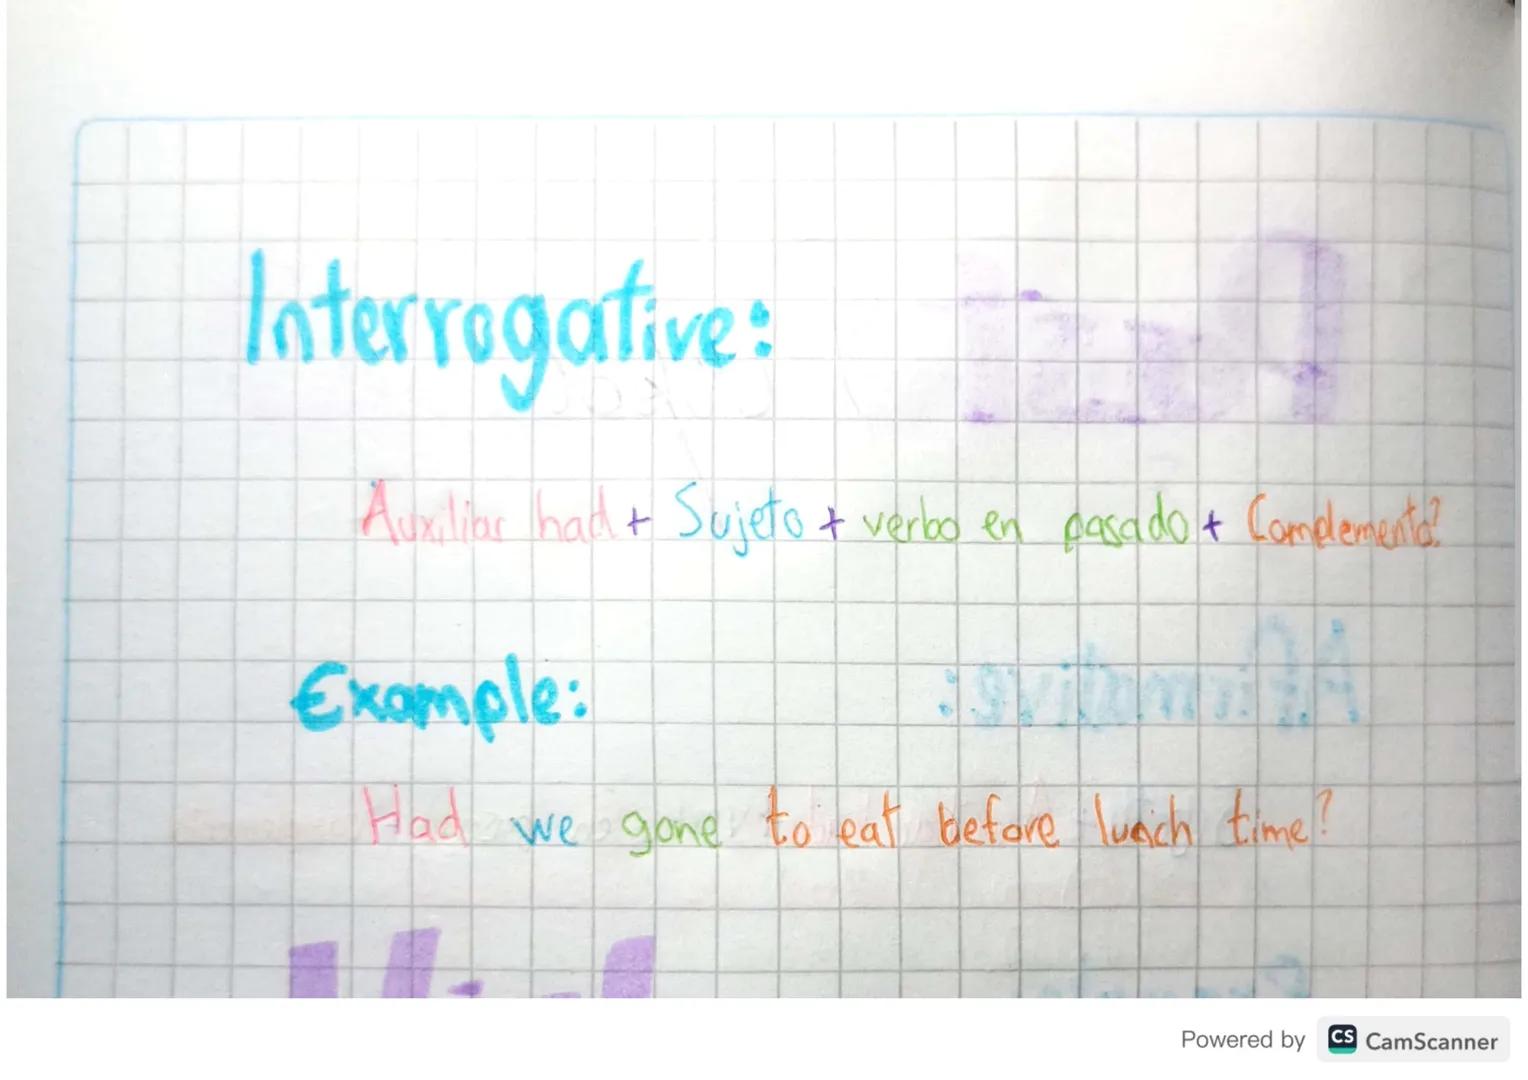 Interrogative:
Auxiliar had + Sujeto + verbo en pasado + Complemento?
Example:
Had we gone to eat before lunch time?
Powered by CS CamScanner